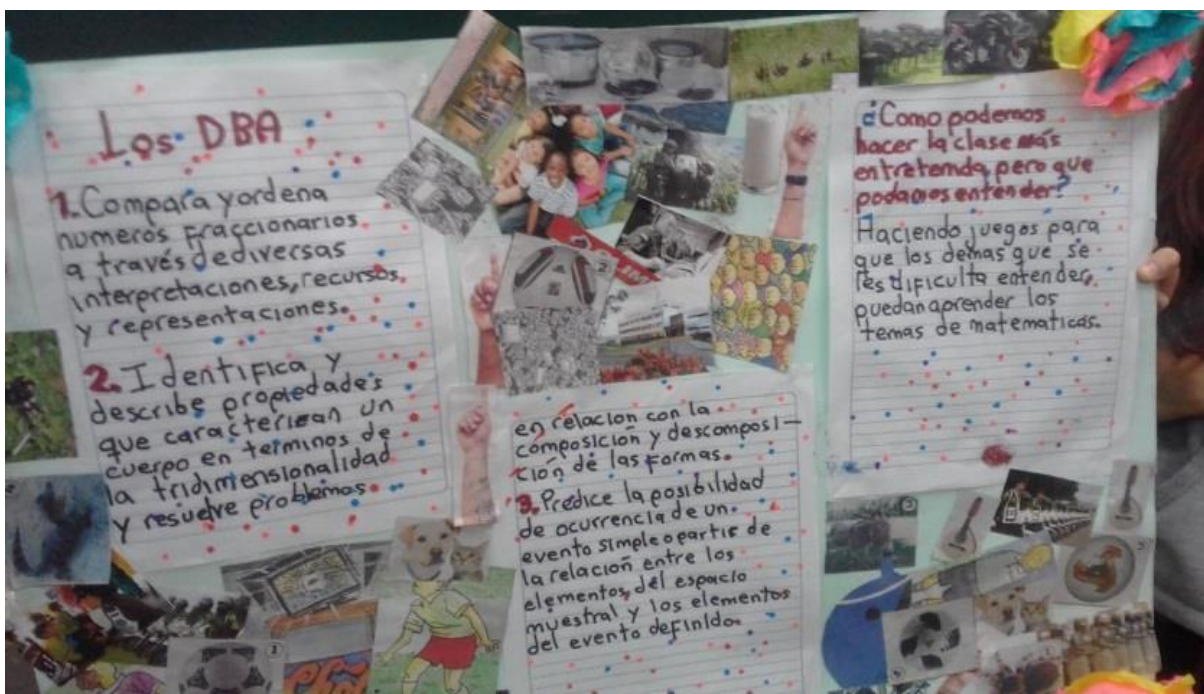 Los DBA
1. Compara y ordena
numeros fraccionarios
a través de diversas
interpretaciones, recursos,
y representaciones.
2. Identifica y
describe propiedades
que caracterizan un
cuerpo en terminos de
la tridimensionalidad
y resuelve problemas
en relacion con la
composición y descomposi-
ción de las formas.
3. Predice la posibilidad
de ocurrencia de un
evento simple a partir de
la relación entre los
elementos, del espacio
muestral y los elementos
del evento definido.
¿Como podemos
hacer la clase más
entretenida, pero que
podamos entender?
Haciendo juegos para
que los demas que se
les dificulta entender,
puedan aprender los
temas de matematicas.